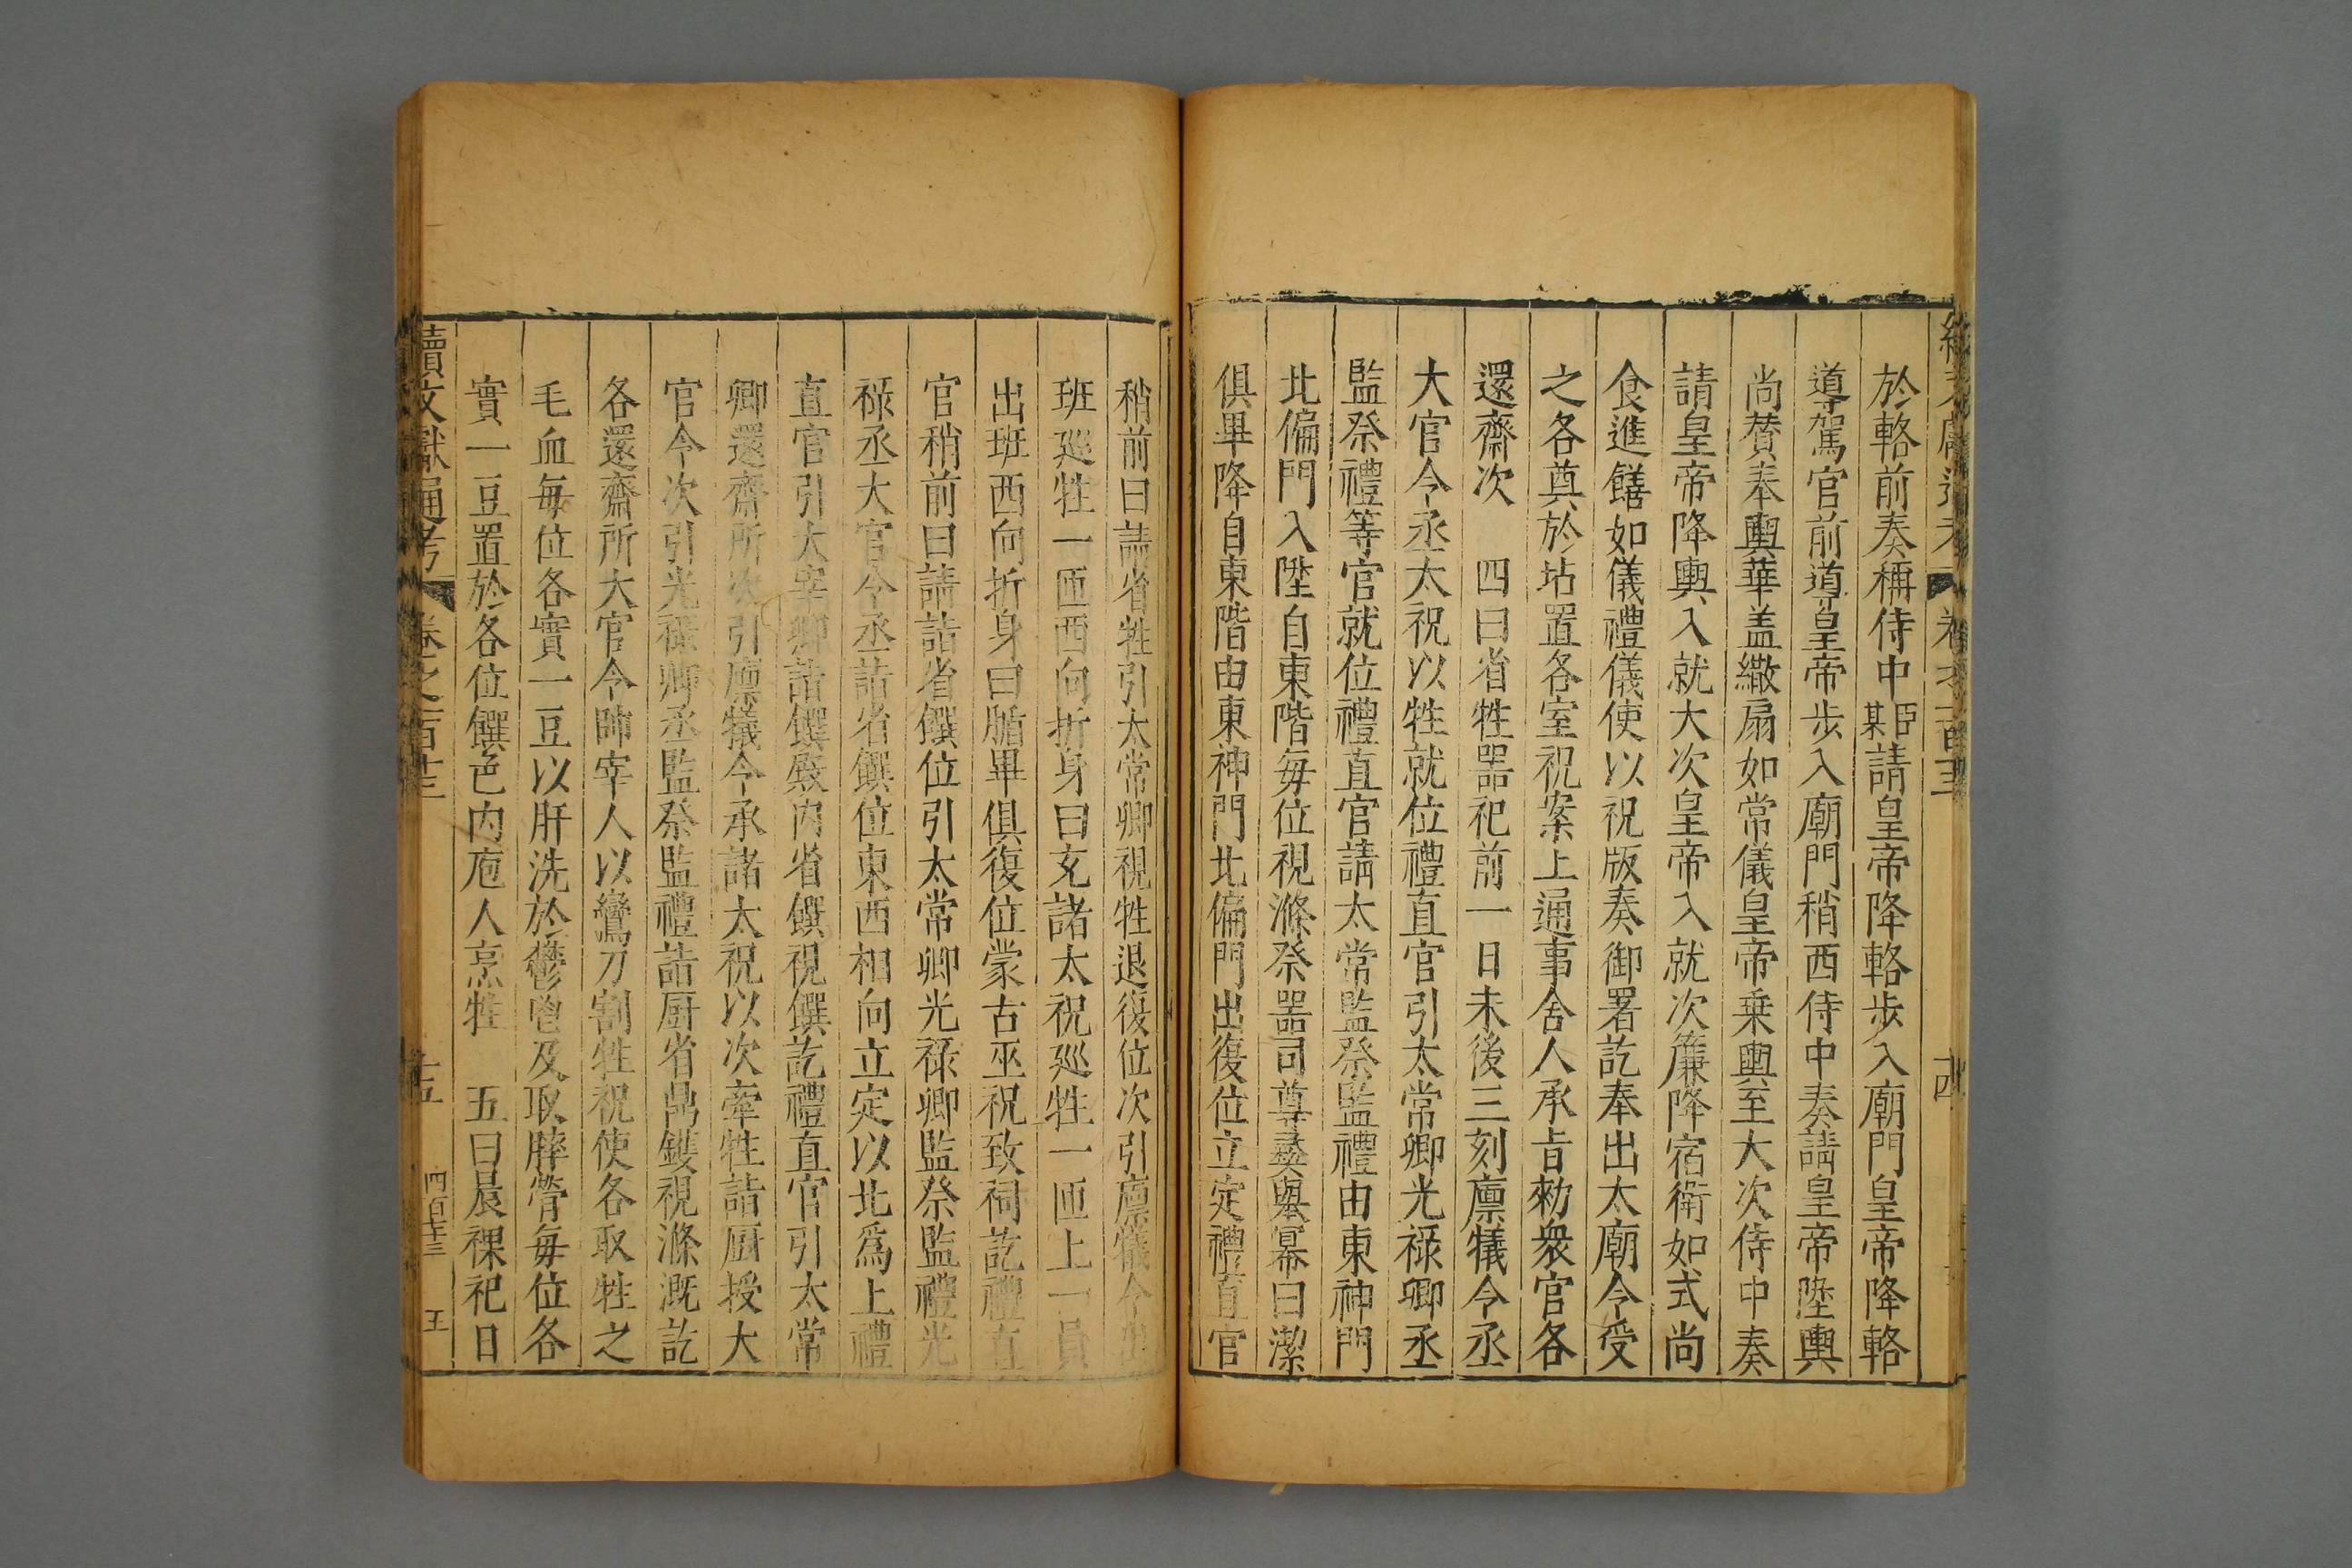 於輅前奏稱侍中臣某請皇帝降輅步入廟門皇帝降輅
導駕官前導皇帝步入廟門稍西侍中奏請皇帝陞輿
尚輦奉輿華盖繖扇如常儀皇帝乗輿至大次侍中奏
請皇帝降輿入就大次皇帝入就次簾降宿衛如式尚
食進饍如儀禮儀使以祝版奏御署訖奉出太廟令受
之各奠於坫置各室祝案上通事舍人承㫖勑衆官各
還齋次　四曰省牲噐祀前一日未後三刻廪犠令丞
大官令丞太祝以牲就位禮直官引太常卿光禄卿丞
監祭禮等官就位禮直官請太常監祭監禮由東神門
北偏門入陞自東階毎位視滌祭噐司尊彛舉冪曰潔
俱畢降自東階由東神門北偏門出復位立定禮直官
稍前曰請省牲引太常卿視牲退復位次引廪犠令出
班廵牲一匝西向折身曰充諸太祝廵牲一匝上一員
出班西向折身曰腯畢俱復位蒙古巫祝致祠訖禮直
官稍前曰請詣省饌位引太常卿光禄卿監祭監禮光
禄丞大官令丞詣省饌位東西相向立定以北爲上禮
直官引太常卿詣饌殿内省饌視饌訖禮直官引太常
卿還齋所次引廪犠令丞諸太祝以次牽牲詣厨授大
官令次引光禄卿丞監祭監禮詣厨省鼎鑊視滌溉訖
各還齋所大官令帥宰人以鸞刀割牲祝使各取牲之
毛血毎位各實一豆以肝洗於鬱鬯及取膟膋毎位各
實一豆置於各位饌邑内庖人烹牲　五曰晨祼祀日
續文獻通考　卷之一百十三　十五　四百十三　王